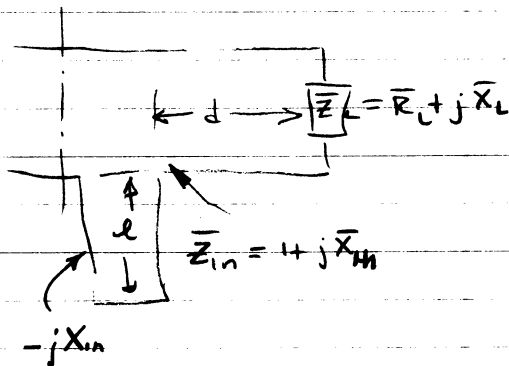 d
Z̄_L = R̄_L + j X̄_L
l
Z̄_in = 1 + j X̄_in
-jX_in